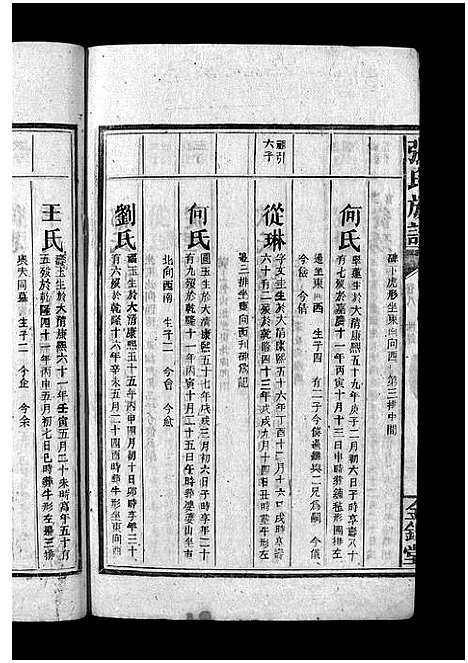 張氏族譜
金鑑堂
碑 虎形坐東向西 第三排中間
何氏
生於大清康熙五十九年庚子二月初六日子時享壽八十
有七歿於嘉慶十一年丙寅十月十三日申時葬 形圍排左
邊坐東 西 生子四 有二子今 與二兄為嗣 今儀
今 今倩
六子
從琳
字文玉生於大清康熙五十六年丁酉十二月十六日戌時享壽
六十有二歿於乾隆四十三年戊戌九月十四日丑時葬牛形左
邊三排坐東向西刊碑為記
何氏
生於大清康熙五十七年戊戌三月初六日子時享年二十
有九歿於乾隆十一年丙寅十月二十五日午時葬 山坐東
北向西南 生子二 今會 今愈
劉氏
生於大清康熙五十五年丙申十月初十日卯時享年三十
有六歿於乾隆十六年辛未五月二十四酉時葬牛形左坐東向西
王氏
生於大清康熙六十一年壬寅五月二十未時為年五十有
五歿於乾隆四十一年丙申五月初七日巳時葬牛形左邊三排
與夫同墓 生子二 今企 今余